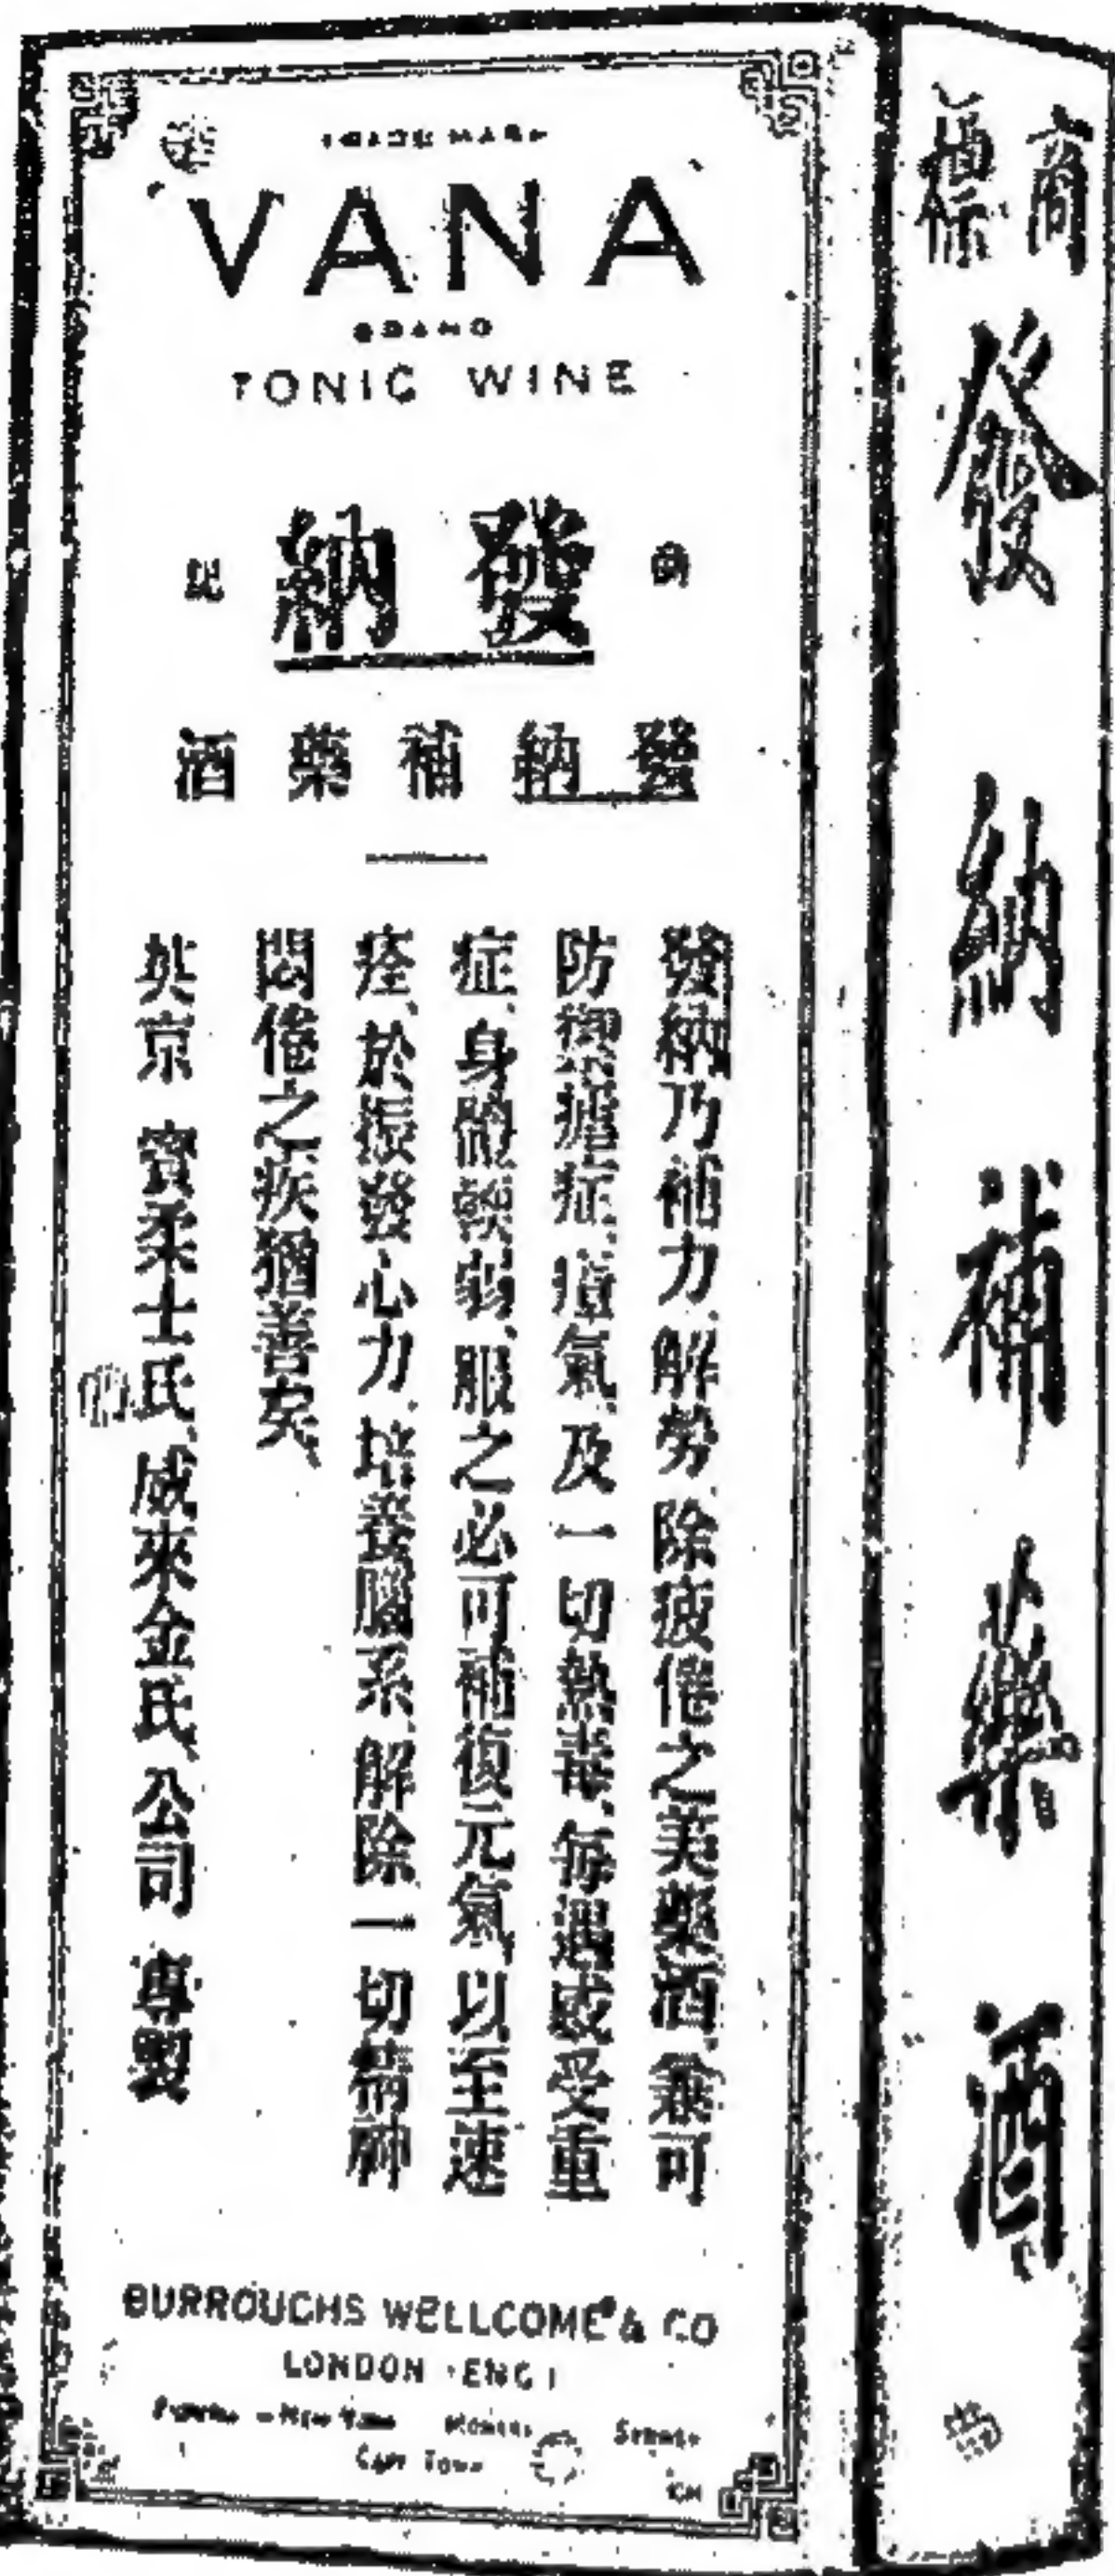 TRADE MARK
VANA
BRAND
TONIC WINE
發納
發納補藥酒
發納乃補力、解勞、除疲倦之美藥酒、兼可
防禦瘧症、瘴氣、及一切熱毒、每遇感受重
症、身體軟弱、服之必可補復元氣、以至速
痊、於振發心力、培養腦系、解除一切精神
悶倦之疾猶善矣、
英京 寶柔士氏、威來金氏、公司 專製
BURROUGHS WELLCOME & CO
LONDON (ENG.)
New York Sydney
Cape Town
商標
發納補藥酒